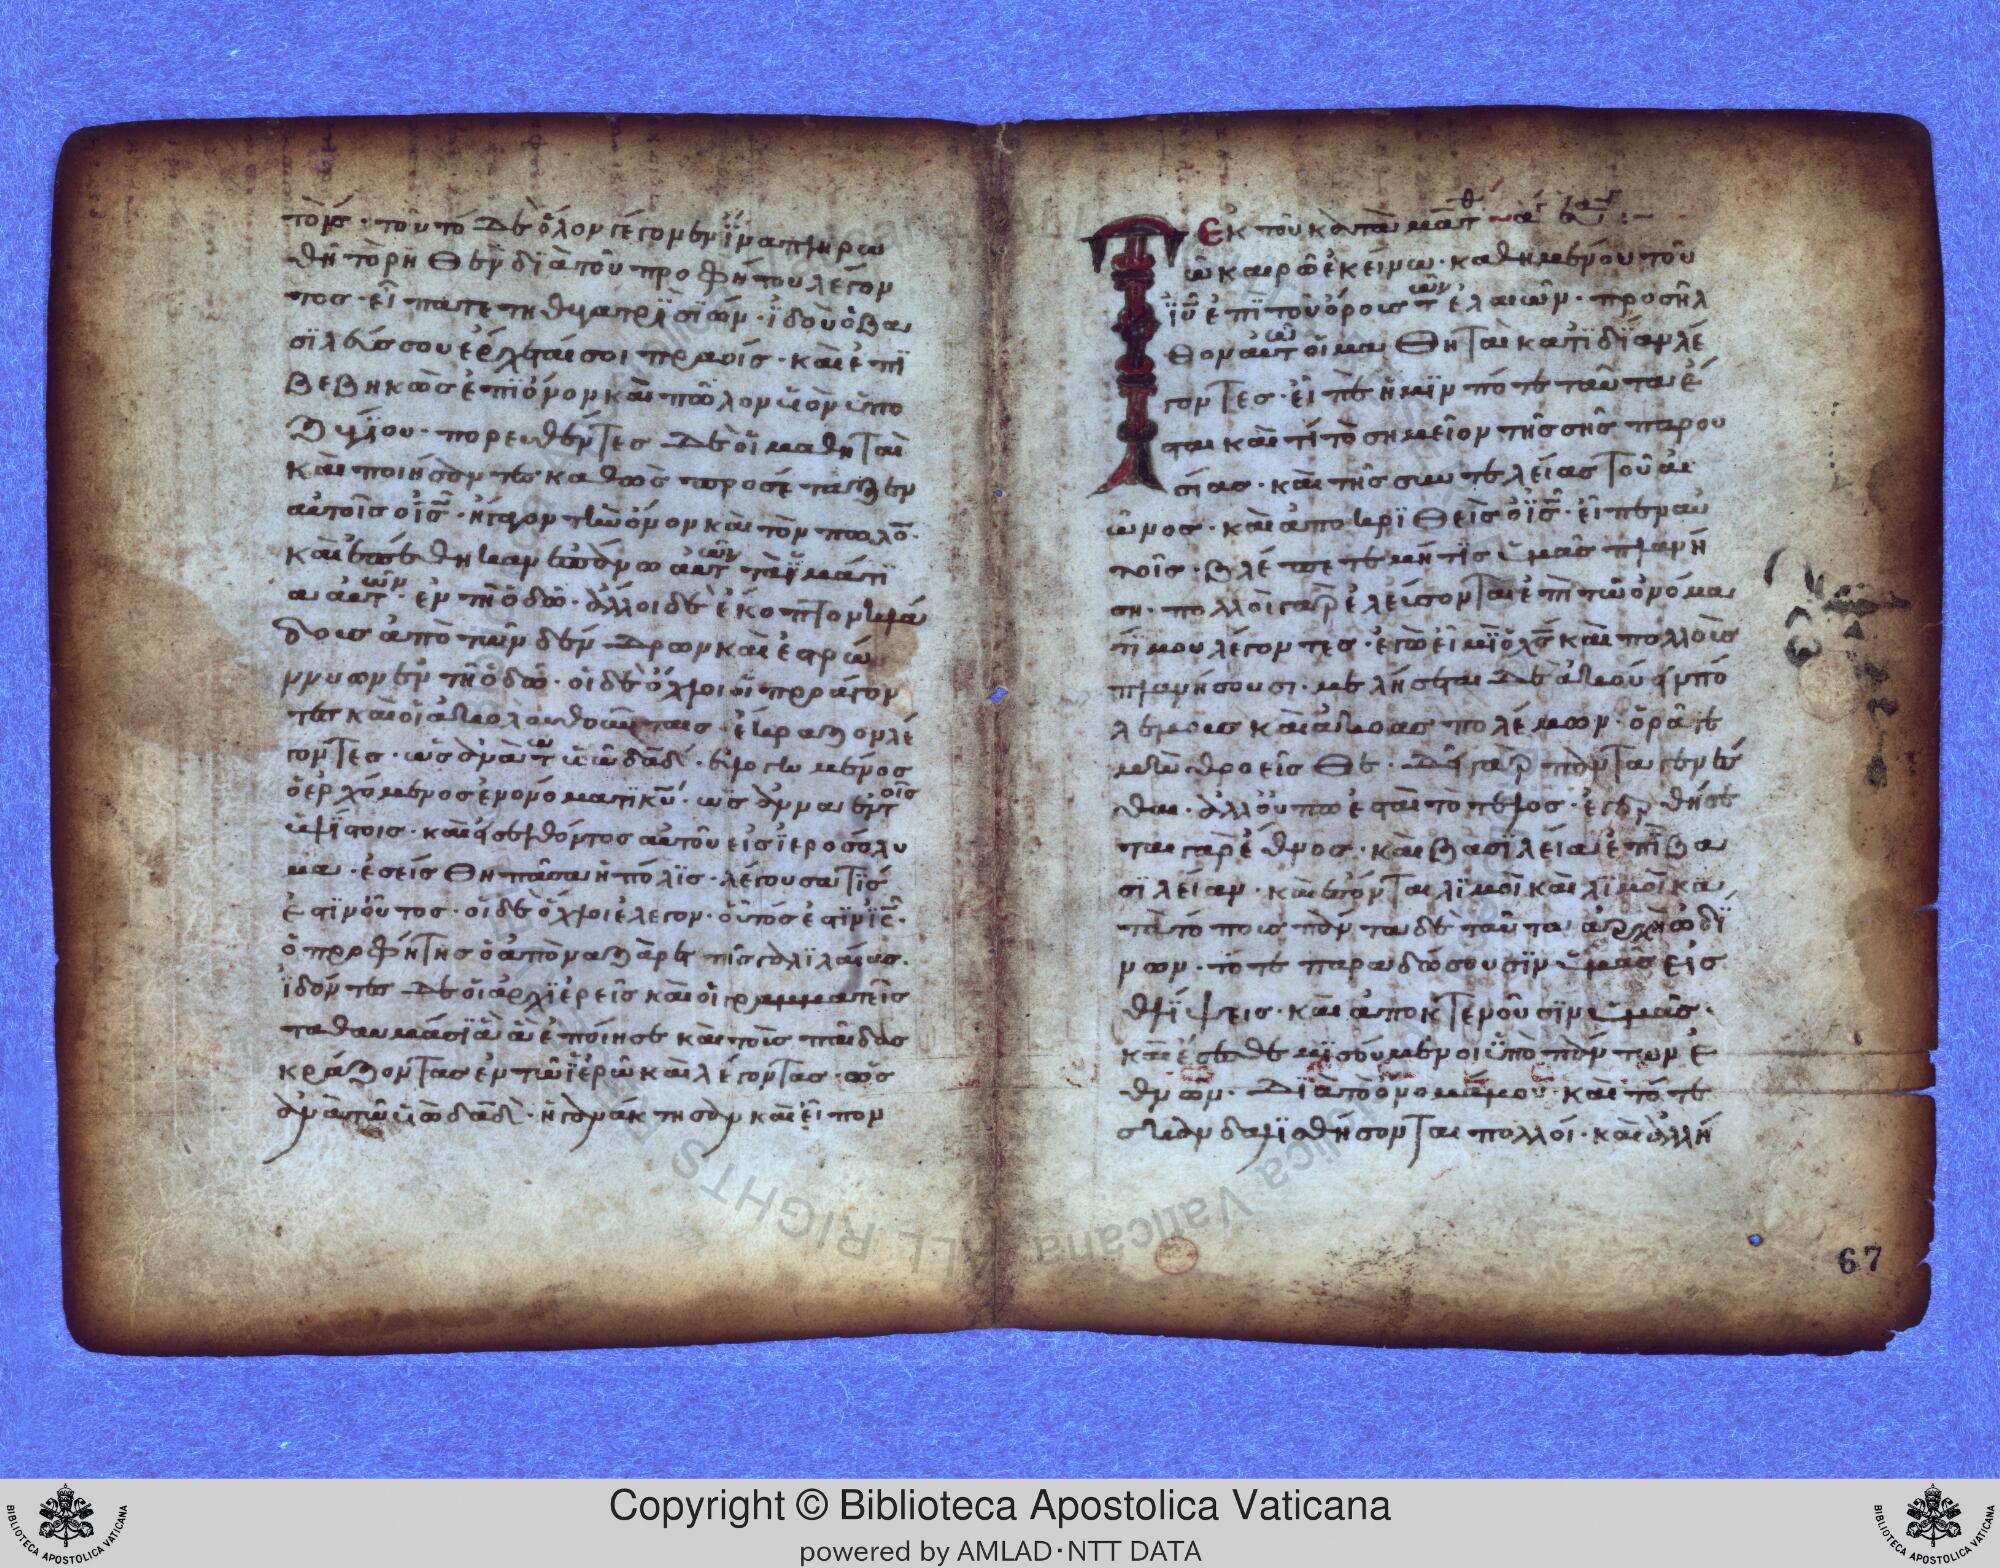 τοὺς· τοῦτο δὲ ὅλον γέγονεν ἵνα πληρω
θῆ τὸ ρηθὲν διὰ τοῦ προφήτου λέγον
τος· εἴπατε τῆ θυγατρὶ σϊών· ϊδοὺ ὁ βα
σϊλεύς σου ἔρχεταί σοι πραῢς· καὶ ἐπϊ
βεβηκὼς ἐπϊ ὄνον καὶ πῶλον ϋἱὸν ὑπο
ζυγίου· πορευθέντες δὲ οἱ μαθηταὶ
καὶ ποιήσαντες καθὼς προσέταξεν
αὐτοῖς ὁ ϊς· ἤγαγον τὴν ὄνον καὶ τὸν πῶλο·
καὶ ἐπέθηκαν ἐπάνω αὐτῶν τὰ ϊμάτϊ
α αὐτῶν· ἐν τῆ ὁδῶ· ἄλλοι δὲ ἔκοπτον κλά
δους ἀπὸ τῶν δένδρων καὶ ἐστρώ
ννυων ἐν τῆ ὁδῶ· οἱ δὲ ὄχλοι οἱ προάγον
τες καὶ οἱ ἀκολουθοῦντες· ἔκραζον λέ
γοντες· ὡς ἀννὰ τῶ ϋἱῶ δαδ· εὐλογημένος
ὁ ἐρχόμενος ἐν ὀνόματϊ κυ· ὡς ἀννα ἐν τοῖς
ὑψίστοις· καὶ εἰσελθόντος αὐτοῦ εἰς ϊεροσόλυ
μα· ἐσείσθη πᾶσα ἡ πόλϊς· λέγουσα τίς
ἐστϊν οὗτος· οἱ δὲ ὄχλοι ἔλεγον· οὗτός ἐστϊν ϊς·
ὁ προφήτης ὁ ἀπὸ ναζαρὲτ τῆς γαλϊλαίας·
ϊδόντες δὲ οἱ ἀρχϊερεῖς καὶ οἱ γραμματεῖς
τα θαυμάσϊα ἃ ἐποίησε καὶ τοὺς παῖδας
κράζοντας ἐν τῶ ϊερῶ καὶ λέγοντας· ὡς
ἀννὰ τῶ ϋἱῶ δαδ· ἠγανάκτησαν καὶ εἶπον
Εκ τοῦ κατα ματθ
Τῶ καιρῶ ἐκείνω· καθημένου τοῦ
ϊυ ἐπϊ τοῦ ὄρους τῶν ἐλαιῶν· προσῆλ
θον αὐτῶ οἱ μαθηταὶ κατϊδίαν λέ
γοντες· εἰπὲ ἡμῖν πότε ταῦτα ἔ
σται καὶ τί τὸ σημεῖον τῆς σῆς παρου
σίας· καὶ τῆς συντελείας τοῦ αἰ
ῶνος· καὶ ἀποκρϊθεὶς ὁ ϊς· εἶπεν αὐ
τοῖς· βλέπετε μή τϊς ὑμᾶς πλανή
ση· πολλοὶ γὰρ ἐλεύσονται ἐπὶ τῶ ὀνόμα
τί μου λέγοντες· ἐγώ εἰμϊ ὁ χς καὶ πολλοὺς
πλανήσουσι· μελήσεται δὲ ἀκούειν πο
λέμους καὶ ἀκοας πολέμων· ὁρᾶτε
μὴ θροεῖσθε· δεῖ γὰρ πάντα γενέσ
θαι· ἀλλ' οὔπω ἐστὶ τὸ τέλος· ἐγερθήσε
ται γὰρ ἔθνος· καὶ βασϊλεία ἐπὶ βα
σϊλείαν· καὶ ἔσονται λϊμοὶ καὶ λϊμοὶ κα
τὰ τόπους πάντα δὲ ταῦτα ἀρχὴ ὠδί
νων· τότε παραδώσουσϊν ὑμᾶς εἰς
θλίψεις· καὶ ἀποκτενοῦσϊν ὑμᾶς·
καὶ ἔσεσθε μϊσούμενοι ϋπὸ πάντων ἐ
θνῶν· διὰ τὸ ὄνομά μου· καὶ τότε
σκανδαλϊσθήσονται πολλοί· καὶ ἀλλή
67
Copyright © Biblioteca Apostolica Vaticana
powered by AMLAD·NTT DATA
BIBLIOTECA APOSTOLICA VATICANA
BIBLIOTECA APOSTOLICA VATICANA